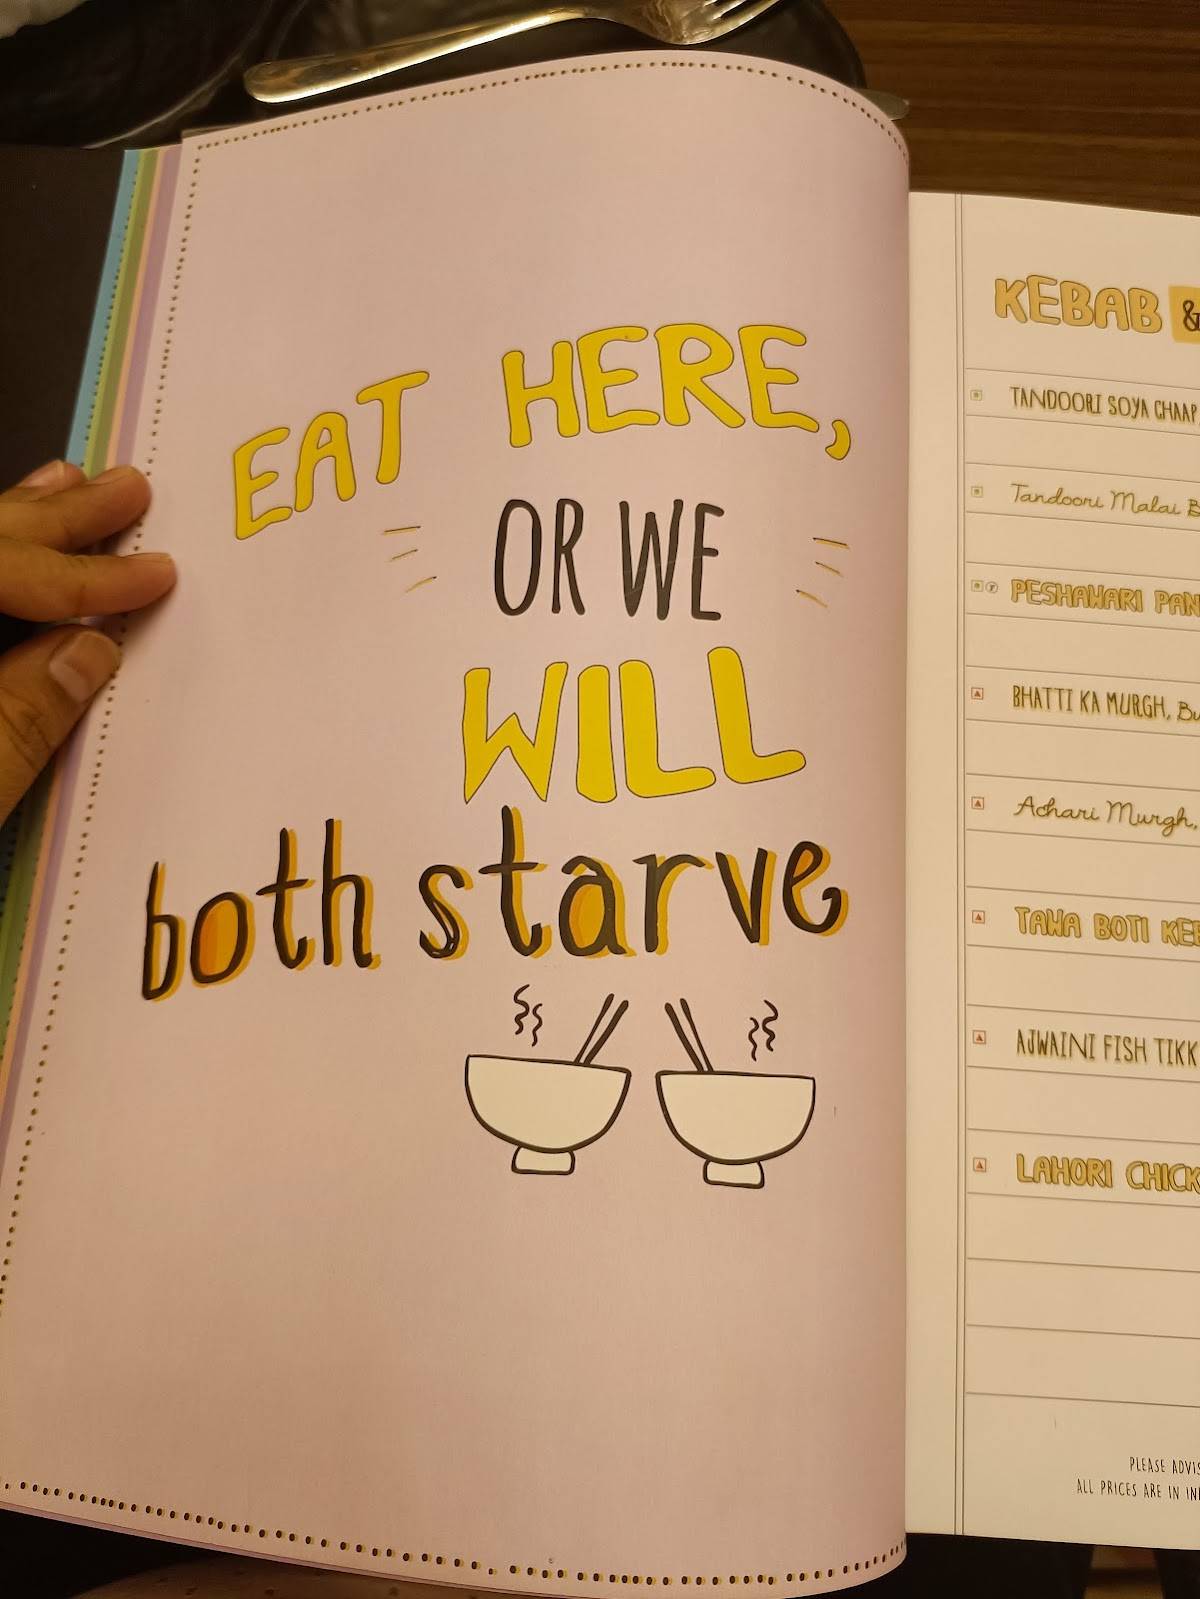 EAT HERE,
OR WE
WILL
both starve
KEBAB &
TANDOORI SOYA CHAAP,
Tandoori Malai B
PESHAWARI PAN
BHATTI KA MURGH, Bu
Achari Murgh,
TAWA BOTI KEB
AJWAINI FISH TIKK
LAHORI CHICK
PLEASE ADVIS
ALL PRICES ARE IN IN